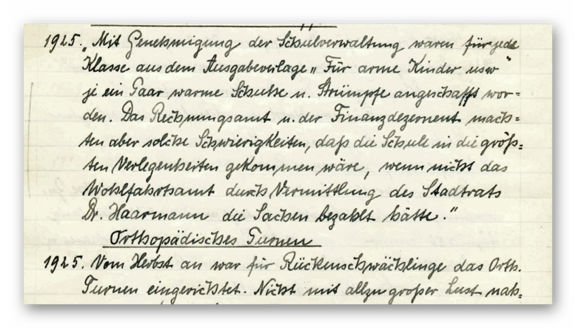 1925. „Mit Genehmigung der Schulverwaltung waren für jede
Klasse aus dem Ausgabeverlage „Für arme Kinder usw“
je ein Paar warme Schuhe u. Strümpfe angeschafft wor-
den. Das Rechnungsamt u. der Finanzdezernent mach-
ten aber solche Schwierigkeiten, daß die Schule in die größ-
ten Verlegenheiten gekommen wäre, wenn nicht das
Wohlfahrtsamt durch Vermittlung des Stadtrats
Dr. Haarmann die Sachen bezahlt hätte.“
Orthopädisches Turnen
1925. Vom Herbst an war für Rückenschwächlinge das Orth.
Turnen eingerichtet. Nicht mit allzu großer Lust nah-